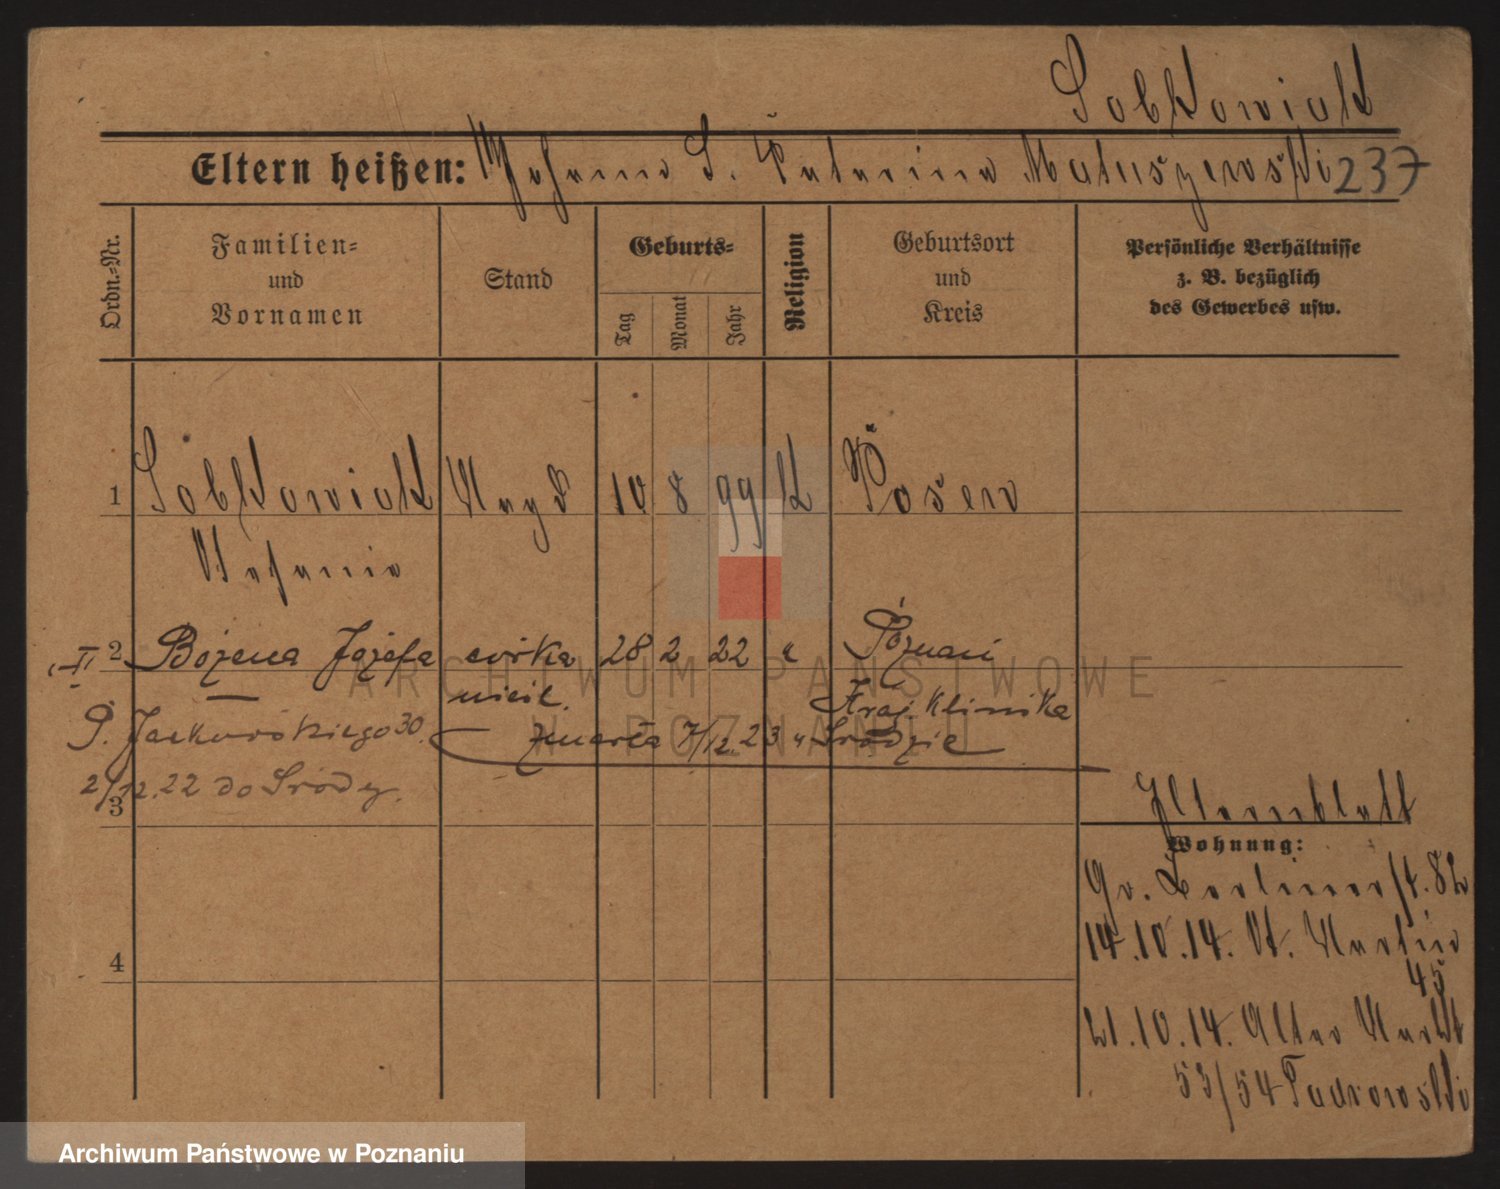 Sobkowiak
Eltern heißen: Johann S. Katarina Matuszewski 237
Ordn.-Nr.
Familien-
und
Vornamen
Stand
Geburts-
Tag
Monat
Jahr
Religion
Geburtsort
und
Kreis
Persönliche Verhältnisse
z. B. bezüglich
des Gewerbes usw.
1 Sobkowiak Magd 10 8 99 K Posen
Stefania
2 Bożena Józefa córka 28 2 22 " Poznań
nieśl. Kraj. Klinika
P. Jackowskiego 30. zmarła 7/12. 23 w Środzie
2/12. 22 do Środy.
3
Elternblatt
Wohnung:
Gr. Berlinerst. 82
14.10.14. St. Martin
45
21.10.14. Alter Markt
4
53/54
ARCHIWUM PAŃSTWOWE
W POZNANIU
Archiwum Państwowe w Poznaniu